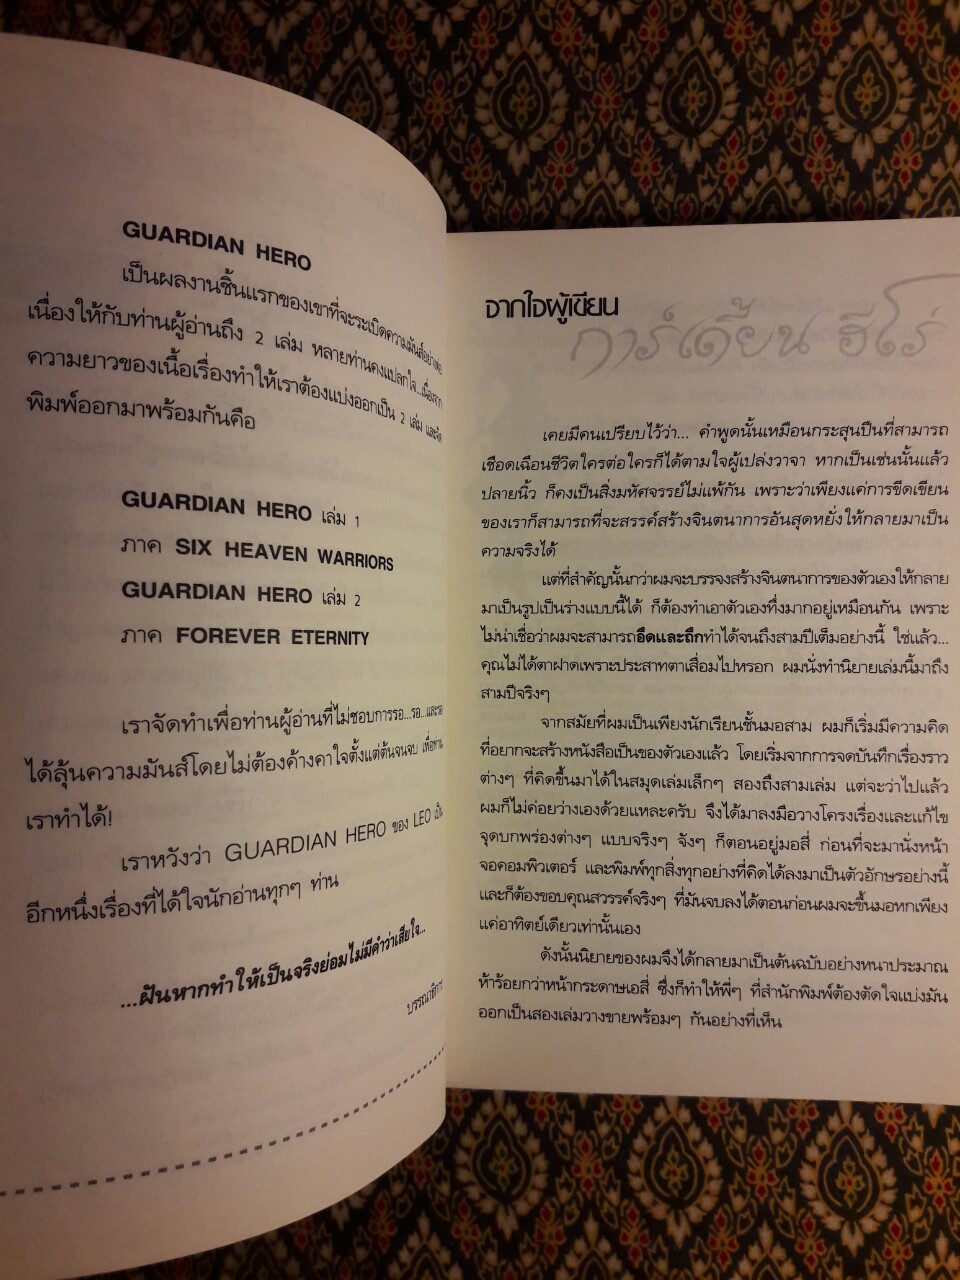 GUARDIAN HERO
เป็นผลงานชิ้นแรกของเขาที่จะระเบิดความมันส์อย่างต่อ
เนื่องให้กับท่านผู้อ่านถึง 2 เล่ม หลายท่านคงแปลกใจ...เนื่องจาก
ความยาวของเนื้อเรื่องทำให้เราต้องแบ่งออกเป็น 2 เล่ม และจัด
พิมพ์ออกมาพร้อมกันคือ
GUARDIAN HERO เล่ม 1
ภาค SIX HEAVEN WARRIORS
GUARDIAN HERO เล่ม 2
ภาค FOREVER ETERNITY
เราจัดทำเพื่อท่านผู้อ่านที่ไม่ชอบการรอ...รอ...และรอ
ได้ลุ้นความมันส์โดยไม่ต้องค้างคาใจตั้งแต่ต้นจนจบ เพื่อท่าน
เราทำได้!
เราหวังว่า GUARDIAN HERO ของ LEO เป็น
อีกหนึ่งเรื่องที่ได้ใจนักอ่านทุกๆ ท่าน
...ฝันหากทำให้เป็นจริงย่อมไม่มีคำว่าเสียใจ...
บรรณาธิการ
จากใจผู้เขียน
การ์เดี้ยน ฮีโร่
เคยมีคนเปรียบไว้ว่า... คำพูดนั้นเหมือนกระสุนปืนที่สามารถ
เชือดเฉือนชีวิตใครต่อใครก็ได้ตามใจผู้เปล่งวาจา หากเป็นเช่นนั้นแล้ว
ปลายนิ้ว ก็คงเป็นสิ่งมหัศจรรย์ไม่แพ้กัน เพราะว่าเพียงแค่การขีดเขียน
ของเราก็สามารถที่จะสรรค์สร้างจินตนาการอันสุดหยั่งให้กลายมาเป็น
ความจริงได้
แต่ที่สำคัญนั้นกว่าผมจะบรรจงสร้างจินตนาการของตัวเองให้กลาย
มาเป็นรูปเป็นร่างแบบนี้ได้ ก็ต้องทำเอาตัวเองทึ่งมากอยู่เหมือนกัน เพราะ
ไม่น่าเชื่อว่าผมจะสามารถอึดและถึกทำได้จนถึงสามปีเต็มอย่างนี้ ใช่แล้ว...
คุณไม่ได้ตาฝาดเพราะประสาทตาเสื่อมไปหรอก ผมนั่งทำนิยายเล่มนี้มาถึง
สามปีจริงๆ
จากสมัยที่ผมเป็นเพียงนักเรียนชั้นมอสาม ผมก็เริ่มมีความคิด
ที่อยากจะสร้างหนังสือเป็นของตัวเองแล้ว โดยเริ่มจากการจดบันทึกเรื่องราว
ต่างๆ ที่คิดขึ้นมาได้ในสมุดเล่มเล็กๆ สองถึงสามเล่ม แต่จะว่าไปแล้ว
ผมก็ไม่ค่อยว่างเองด้วยแหละครับ จึงได้มาลงมือวางโครงเรื่องและแก้ไข
จุดบกพร่องต่างๆ แบบจริงๆ จังๆ ก็ตอนอยู่มอสี่ ก่อนที่จะมานั่งหน้า
จอคอมพิวเตอร์ และพิมพ์ทุกสิ่งทุกอย่างที่คิดได้ลงมาเป็นตัวอักษรอย่างนี้
และก็ต้องขอบคุณสวรรค์จริงๆ ที่มันจบลงได้ตอนก่อนผมจะขึ้นมอหกเพียง
แค่อาทิตย์เดียวเท่านั้นเอง
ดังนั้นนิยายของผมจึงได้กลายมาเป็นต้นฉบับอย่างหนาประมาณ
ห้าร้อยกว่าหน้ากระดาษเอสี่ ซึ่งก็ทำให้พี่ๆ ที่สำนักพิมพ์ต้องตัดใจแบ่งมัน
ออกเป็นสองเล่มวางขายพร้อมๆ กันอย่างที่เห็น